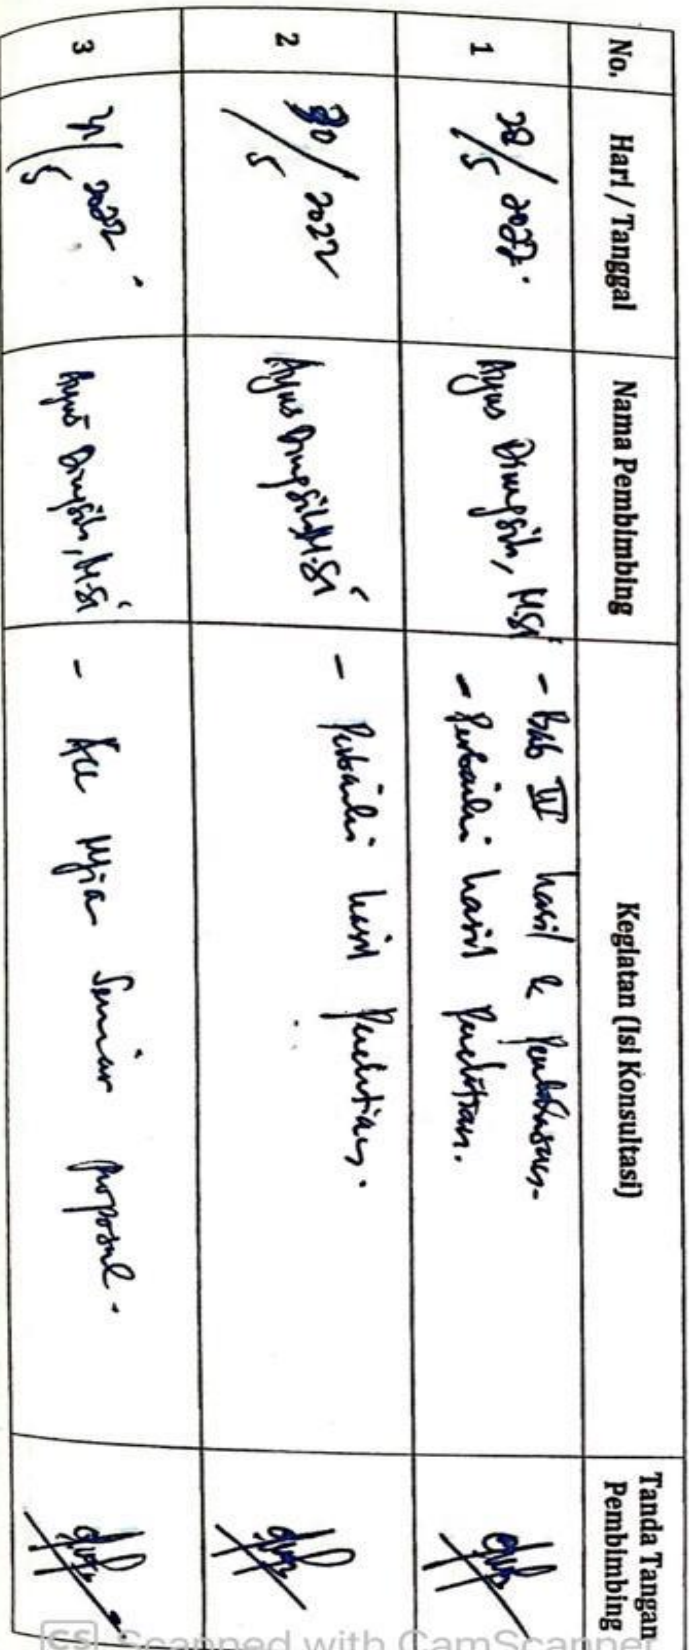 No. Hari / Tanggal Nama Pembimbing Kegiatan (Isi Konsultasi) Tanda Tangan Pembimbing
1 28/5 2022 Agus M.Si - Bab IV hasil & Pembahasan.
- Perbaiki hasil Penelitian.
2 30/5 2022 Agus M.Si - Perbaiki hasil Penelitian.
3 31/5 2022 Agus M.Si - Acc Ujian Seminar proposal.
CS Scanned with CamScanner